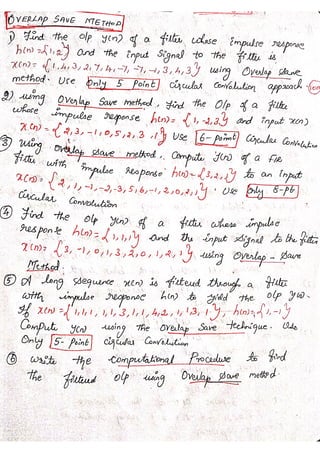 OVERLAP SAVE METHOD
1) Find the o/p y(n) of a filter whose impulse response
h(n) = {1,2} and the input signal to the filter is
x(n) = {1,4,3,2,7,4,-7,-7,-1,3,4,3} using Overlap Save
method. Use Only 5 Point Circular Convolution approach
2) Using Overlap Save method, Find the O/p of a filter
whose impulse response h(n) = {1,-2,3} and input x(n)
x(n) = {2,3,-1,0,5,2,3,1} Use 6-point Circular Convolution
3) Using Overlap Save method, Compute y(n) of a FIR
filter with impulse Response h(n) = {3,2,1} to an Input
x(n) = {2,1,-1,-2,-3,5,6,-1,2,0,2,1}. Use Only 8-pt
Circular Convolution
4) Find the o/p y(n) of a filter whose impulse
response h(n) = {1,1,1} and the input signal to the filter
x(n) = {3,-1,0,1,3,2,0,1,2,1} using Overlap-Save
Method.
5) A long sequence x(n) is filtered through a filter
with impulse response h(n) to yield the o/p y(n).
If x(n) = {1,1,1,1,1,3,1,1,4,2,1,1,3,1}, h(n) = {1,-1}
Compute y(n) using the Overlap Save technique. Use
Only 5-Point circular Convolution
6) write the computational Procedure to find
the filtered o/p using Overlap Save method.